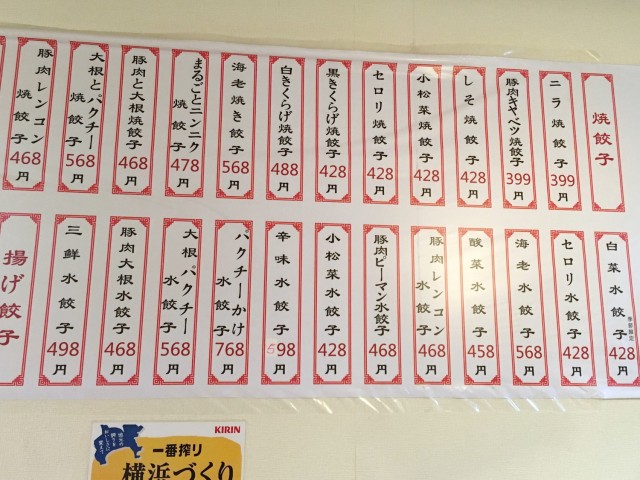 焼餃子
ニラ焼餃子399円
豚肉キャベツ焼餃子399円
しそ焼餃子428円
小松菜焼餃子428円
セロリ焼餃子428円
黒きくらげ焼餃子428円
白きくらげ焼餃子488円
海老焼き餃子568円
まるごとニンニク焼餃子478円
豚肉と大根焼餃子468円
大根とパクチー焼餃子568円
豚肉レンコン焼餃子468円
白菜水餃子428円
セロリ水餃子428円
海老水餃子568円
酸菜水餃子458円
豚肉レンコン水餃子468円
豚肉ピーマン水餃子468円
小松菜水餃子428円
辛味水餃子598円
パクチーかけ水餃子768円
大根パクチー水餃子568円
豚肉大根水餃子468円
三鮮水餃子498円
揚げ餃子
KIRIN
一番搾り
横浜づくり